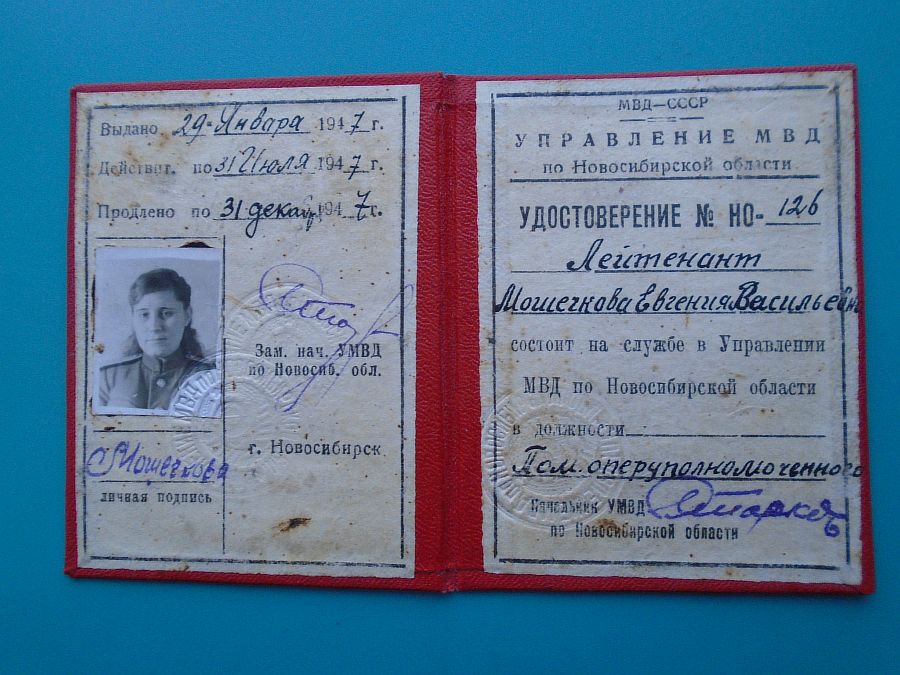 Выдано 29 Января 1947 г.
Действит. по 31 Июля 1947 г.
Продлено по 31 декабр 1947 г.
Зам. нач. УМВД
по Новосиб. обл.
г. Новосибирск
Мошечкова
личная подпись
МВД—СССР
УПРАВЛЕНИЕ МВД
по Новосибирской области
УДОСТОВЕРЕНИЕ № НО- 126
Лейтенант
Мошечкова Евгения Васильевна
состоит на службе в Управлении
МВД по Новосибирской области
в должности
Пом. оперуполномоченного
Начальник УМВД
по Новосибирской области